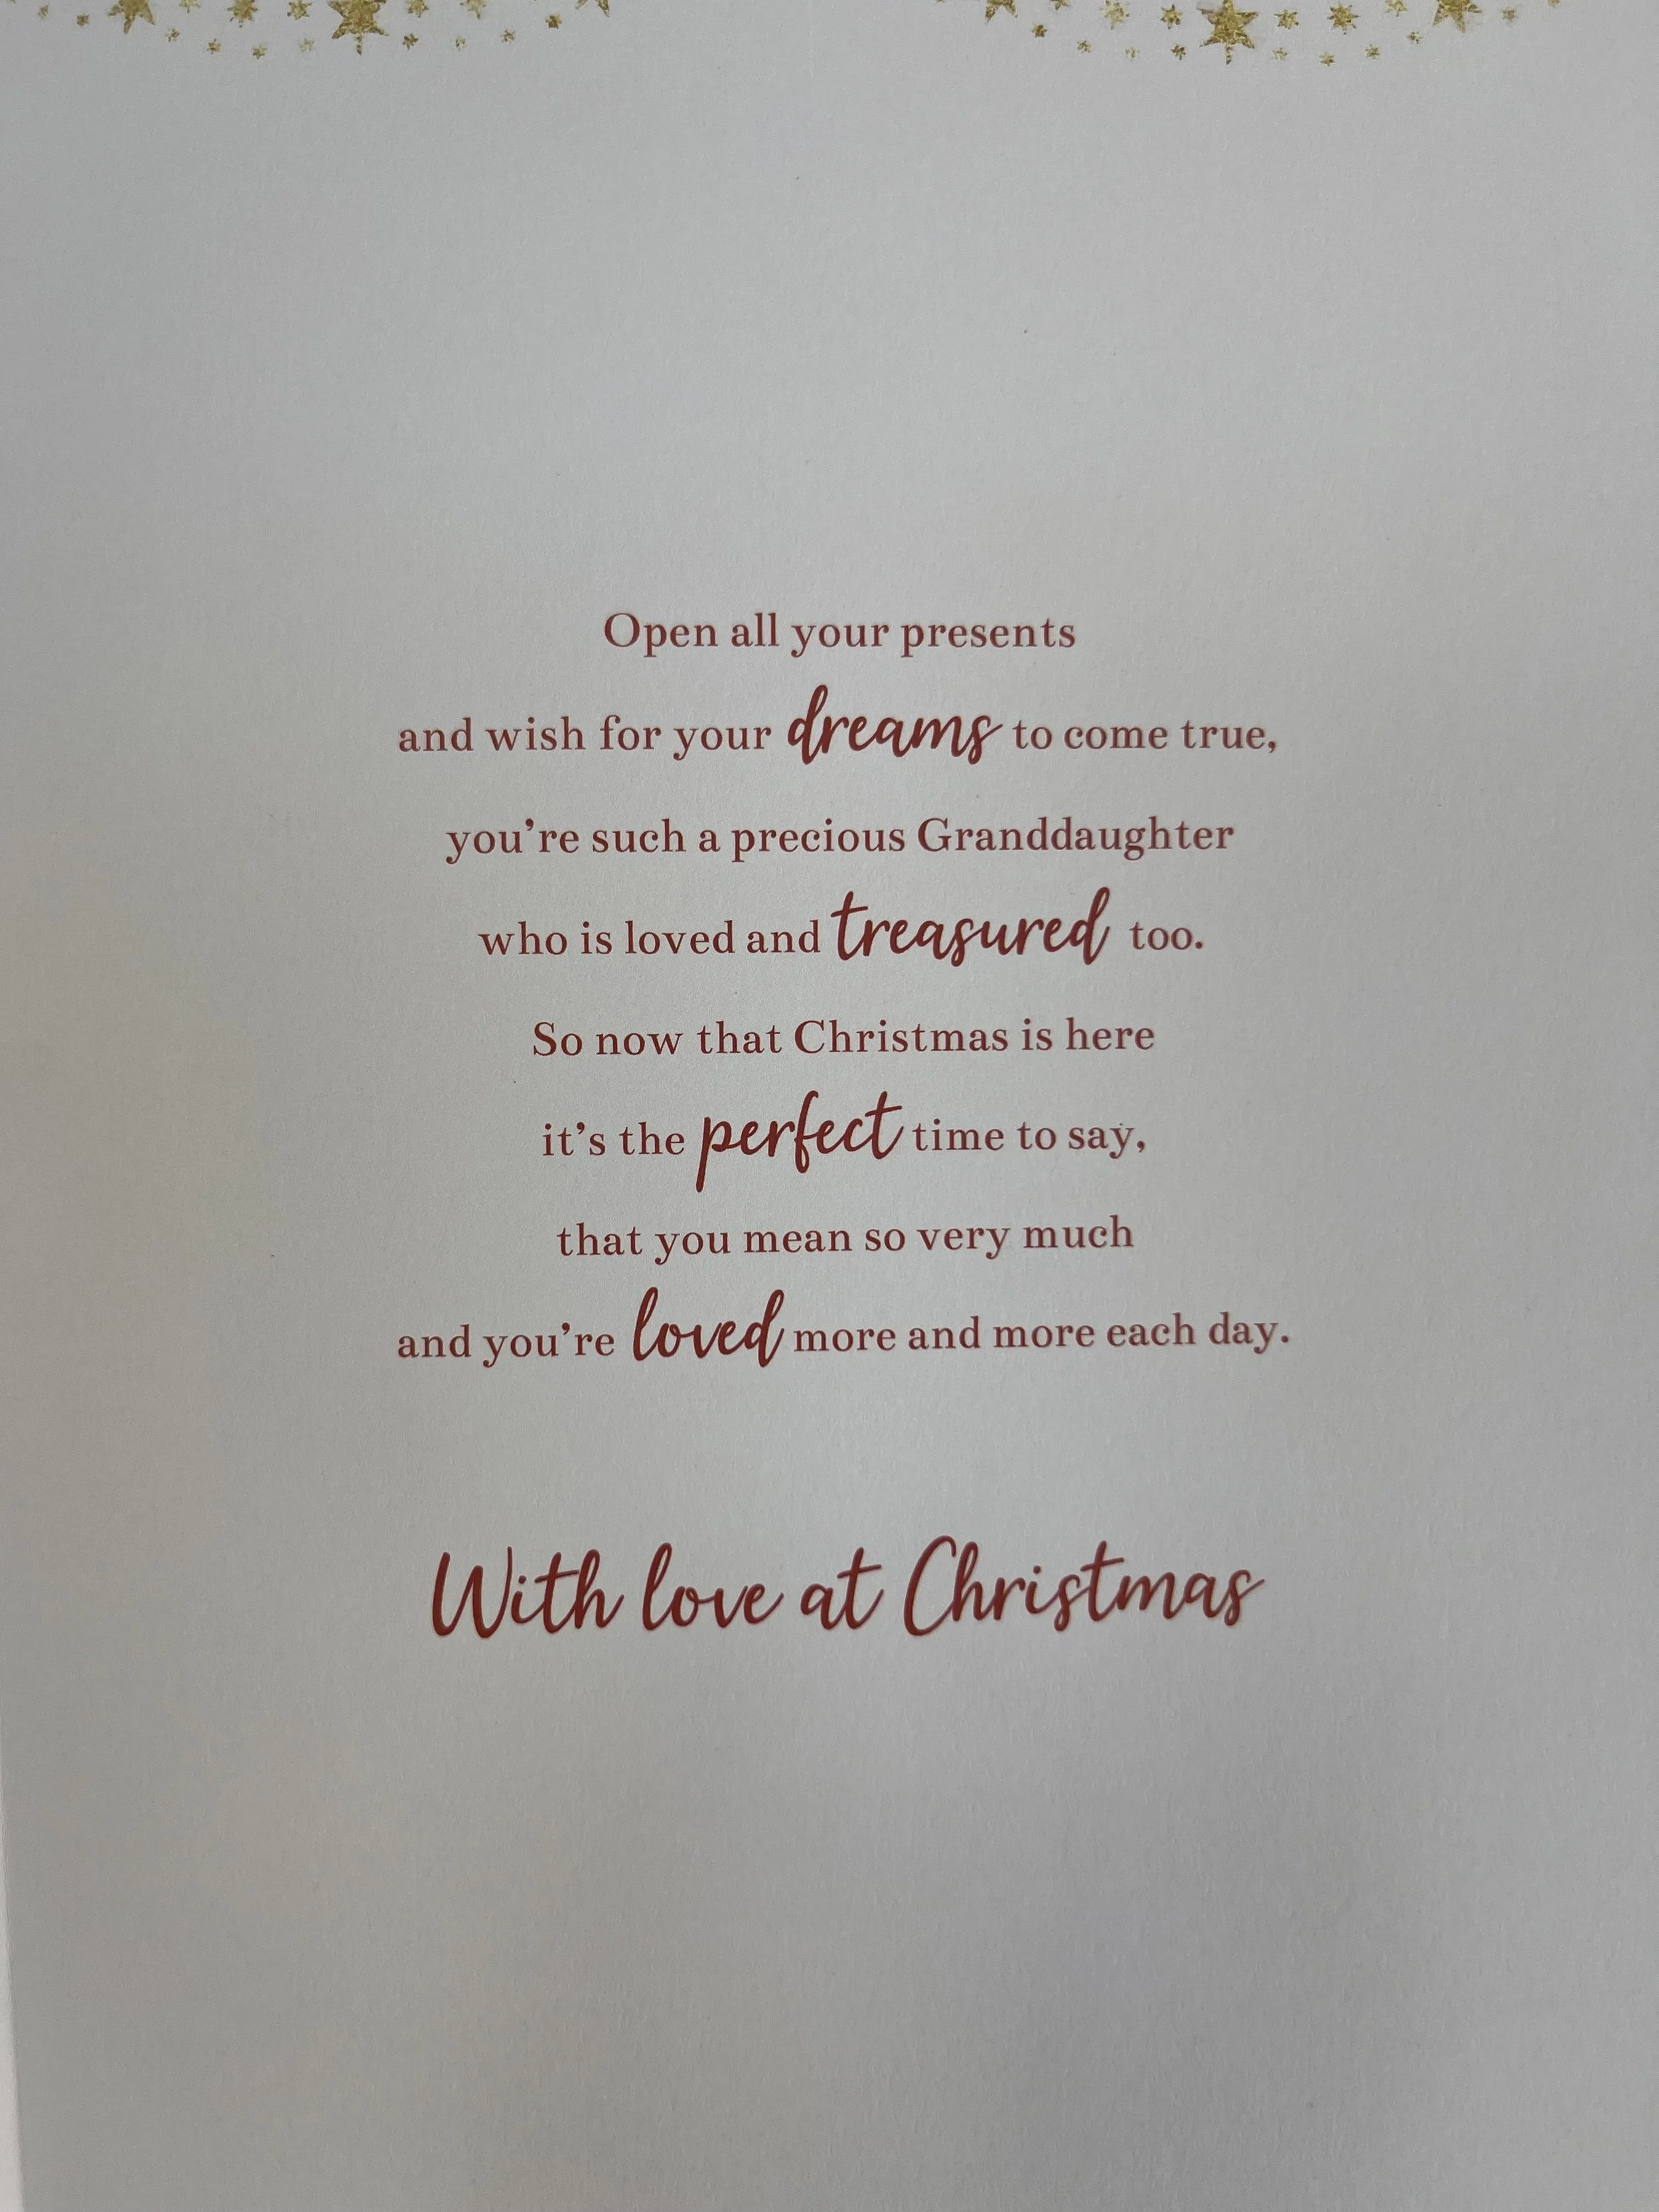 Open all your presents
and wish for your dreams to come true,
you’re such a precious Granddaughter
who is loved and treasured too.
So now that Christmas is here
it’s the perfect time to say,
that you mean so very much
and you’re loved more and more each day.
With love at Christmas